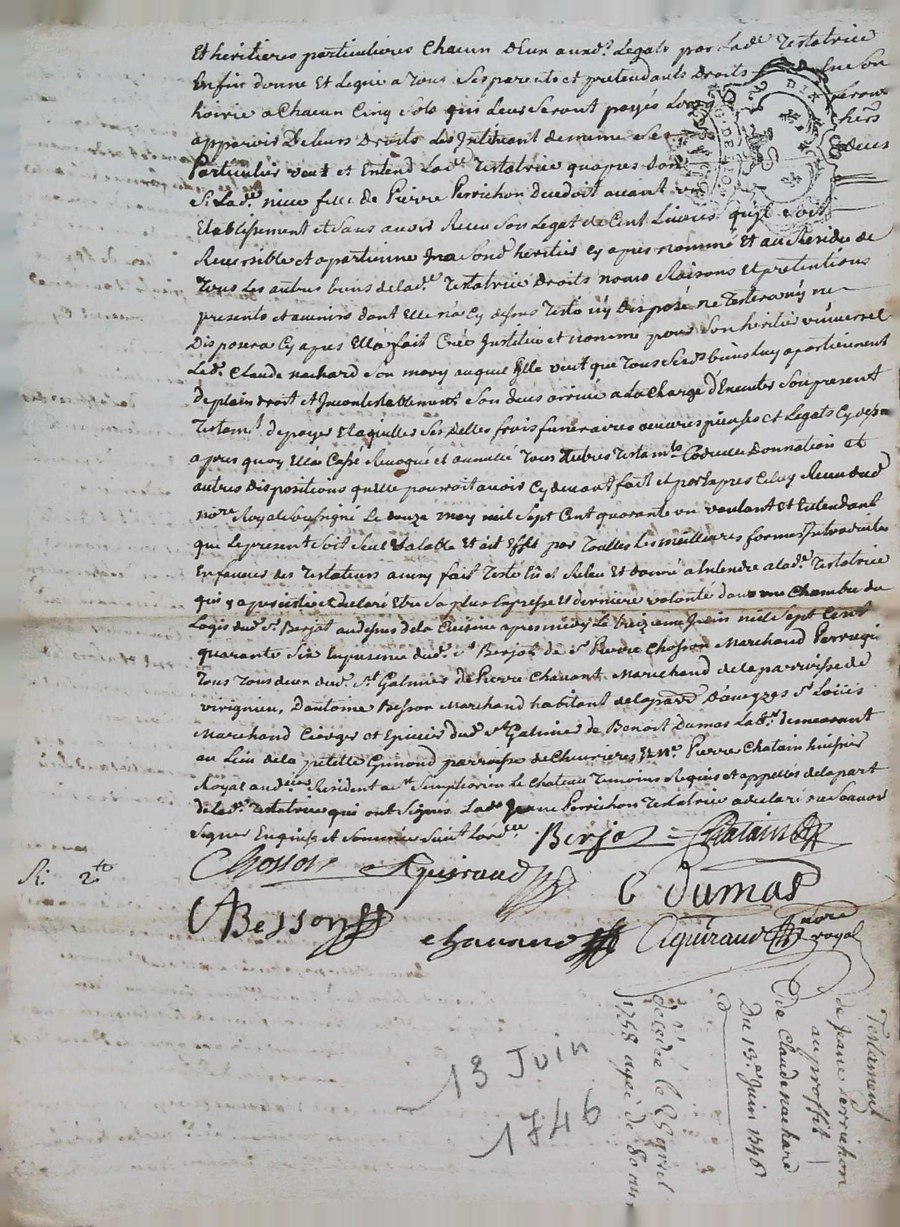 Et heritieres particulieres Chacun d'Eux auxd.s Legats par Lad.e Testatrice
Enfin donne Et Legue a Tous Ses parents et pretendants Droits En Son
hoirie a Chacun Cinq Sols qui Leur Seront payés Lors
apparoir De Leurs Droits Les Instituant de meme Ses hers
Particulier veut et Entend Lad.e Testatrice qu'apres Son deces
Si Lad.e niece fille de Pierre Perrichon decedoit avant
Etablissement et Sans avoir Receu Son Legat de Cent Livres qu'il Soit
Reversible et apartienne a Sond heritier Cy apres nommé Et au Residu de
Tous Les autres biens de lad.e Testatrice Droits noms Raisons et pretentions
presents et avenirs dont Elle n'a Cy dessus Testé n'y Disposé ne Testera n'y ne
Disposera Cy apres Elle a fait Créé Institué et nommé pour Son heritier universel
Led. Claude nachard Son mary auquel Elle veut que Tous Sesd biens Luy apartiennent
de plain droit et Incontestablement Son deces arrivé a la Charge d'Executer Son present
Testam.t de payer Et aquitter Ses dettes frais funeraires oeuvres pieuses et Legats Cy dessus
apres quoy Elle a Cassé Revoqué et annullé Tous autres Testam.ts Codicille Donnation et
autres Dispositions qu'elle pourroit avoir Cy devant fait et par Exprès Celuy Receu dud
no.re Royal Soussigné Le douze may mil Sept Cent quarante un voulant et Entendant
que Le present Soit Seul valable Et ait Effet par Touttes Les meilleures formes Introduittes
En faveur des Testateurs ainsy fait Testé lû et Releu Et donné a Entendre a lad.e Testatrice
qui y a persisté et declaré Etre Sa plus Expresse Et derniere volonté dans une Chambre du
Logis dud. S.r Berjat au dessus de la Cuisine apres midy Le treizieme Juin mil Sept Cent
quarante Six En presence dud. S.r Berjat de S.r Pierre Chosson Marchand
Tous deux dud. S.t Galmier de Pierre Chavant Marchand de la parroisse de
virignieu, D'antoine Besson Marchand habitant de la parr.e D'aveyzes S.r
Marchand Cierger et Epicier dud S.t Galmier de Benoit Dumas Lab.r demeurant
au Lieu de la petitte Gimond parroisse de Chevrieres Et M.e Pierre Chatain huissier
Royal Resident a S.t Simphorien Le Chateau Temoins Requis et appellés de la part
de lad.e Testatrice qui ont Signés Lad.e Jeane Perrichon Testatrice a declaré ne Scavoir
Signer Enquise et Sommée Suivt l'ord.ce
Berjat Chatain
Chosson Aguiraud C Dumas
R: 2tt
A Besson chavand Aguiraud nore royal
Testament
de Jeane Perrichon
au proffit
de Claude nachard
Du 13.e Juin 1746
decedée le 25 avril
1758 agée de 80 ans
13 Juin
1746